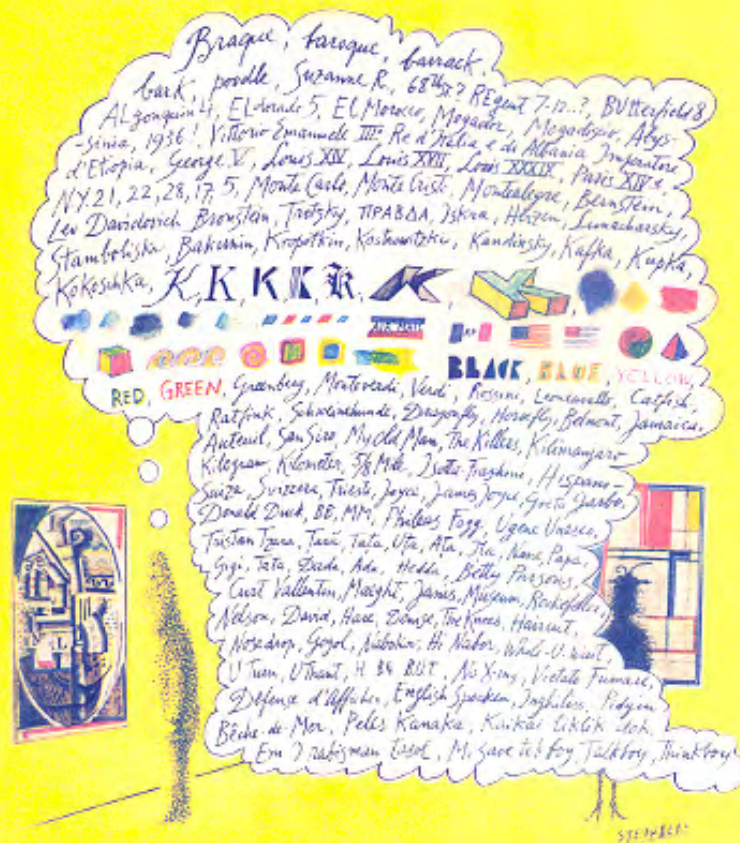 Braque, baroque, barrack,
bark, poodle, Suzanne R., 68th St? REgent 7-12..?, BUtterfield 8
ALgonquin 4, ELdorado 5, EL Morocco, Mogador, Mogadiscio, Abys-
-sinia, 1936!, Vittorio Emanuele III° Re d'Italia e di Albania Imperatore
d'Etiopia, George V, Louis XIV, Louis XVII, Louis XXXIX, Paris XIVe,
N.Y. 21, 22, 28, 17, 5, Monte Carlo, Monte Cristi, Montealegre, Bernstein,
Lev Davidovich Bronstein, Trotzky, ПРАВДА, Iskra, Herzen, Lunacharsky,
Stambolisky, Bakunin, Kropotkin, Kostrowitzky, Kandinsky, Kafka, Kupka,
Kokoschka, K, K, K, K, K, K, K
AIR MAIL
BLACK, BLUE, YELLOW,
RED, GREEN, Greenberg, Monteverdi, Verdi, Rossini, Leoncavallo, Catfish,
Ratfink, Schweinehunde, Dragonfly, Horsefly, Belmont, Jamaica,
Auteuil, San Siro, My Old Man, The Killers, Kilimanjaro
Kilogram, Kilometer, 5/8 Mile, Isotta Fraschini, Hispano-
Suiza, Svizzera, Trieste, Joyce, James Joyce, Greta Garbo,
Donald Duck, BB, MM, Phileas Fogg, Ugene Unesco,
Tristan Tzara, Tata, Uta, Ata, Ita, Nane, Papa,
Gigi, Tata, Dada, Ada, Hedda, Betty Parsons,
Curt Valentin, Maeght, Janis, Museum, Rockefeller,
Nelson, David, Hare, Denise, The Knees, Haircut,
Nosedrop, Gogol, Nabokov, Hi Nabor, Whale-U-Wait,
U Turn, U Thant, No X-ing, Vietato Fumare,
Défense d'Afficher, English Spoken, Inglulies, Pidgin
Bêche-de-Mer, Peles Kanaka, Kaikai liklik
Em, Talkboy, Thinkboy
STEINBERG